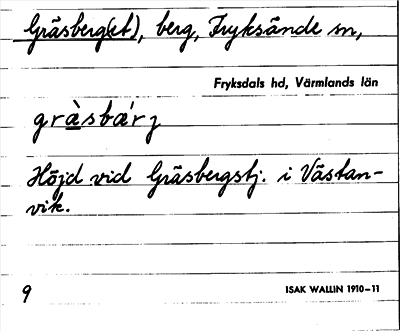 Gräsberg(et), berg, Fryksände sn,
Fryksdals hd, Värmlands län
gràsbær̀j
Höjd vid Gräsbergstj. i Västan-
vik.
9
ISAK WALLIN 1910–11